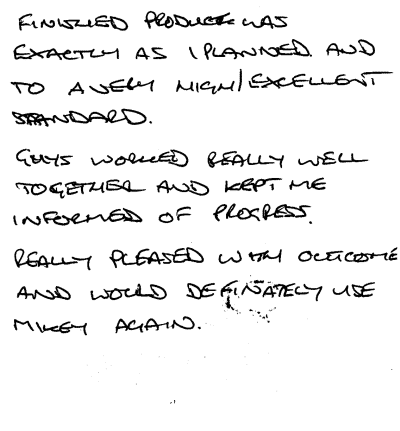 FINISHED PRODUCT WAS
EXACTLY AS I PLANNED. AND
TO A VERY HIGH/EXCELLENT
STANDARD.
GUYS WORKED REALLY WELL
TOGETHER AND KEPT ME
INFORMED OF PROGRESS.
REALLY PLEASED WITH OUTCOME
AND WOULD DEFINATELY USE
MIKEY AGAIN.